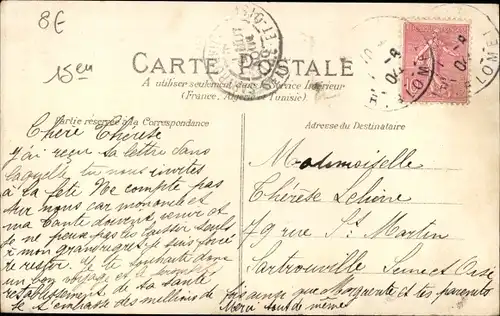 8€
15en
CARTE POSTALE
A utiliser seulement dans le Service Intérieur
(France, Algérie et Tunisie).
Partie réservée à la Correspondance
Adresse du Destinataire
Chère Thérèse
J'ai reçu ta lettre dans
laquelle tu nous invites
à ta fête Ne compte pas
sur nous car mononcle et
ma tante doivent venir et
je ne pense pas les laisser seuls
à mon grand regret je suis forcé
de rester. Je te souhaite donc
un bon voyage et le
rétablissement de ta santé
Je t'embrasse des millions de
fois ainsi que Marguerite et tes parents
Merci tout de même
Mademoiselle
Thérèse
79 rue St Martin
Sartrouville Seine et Oise